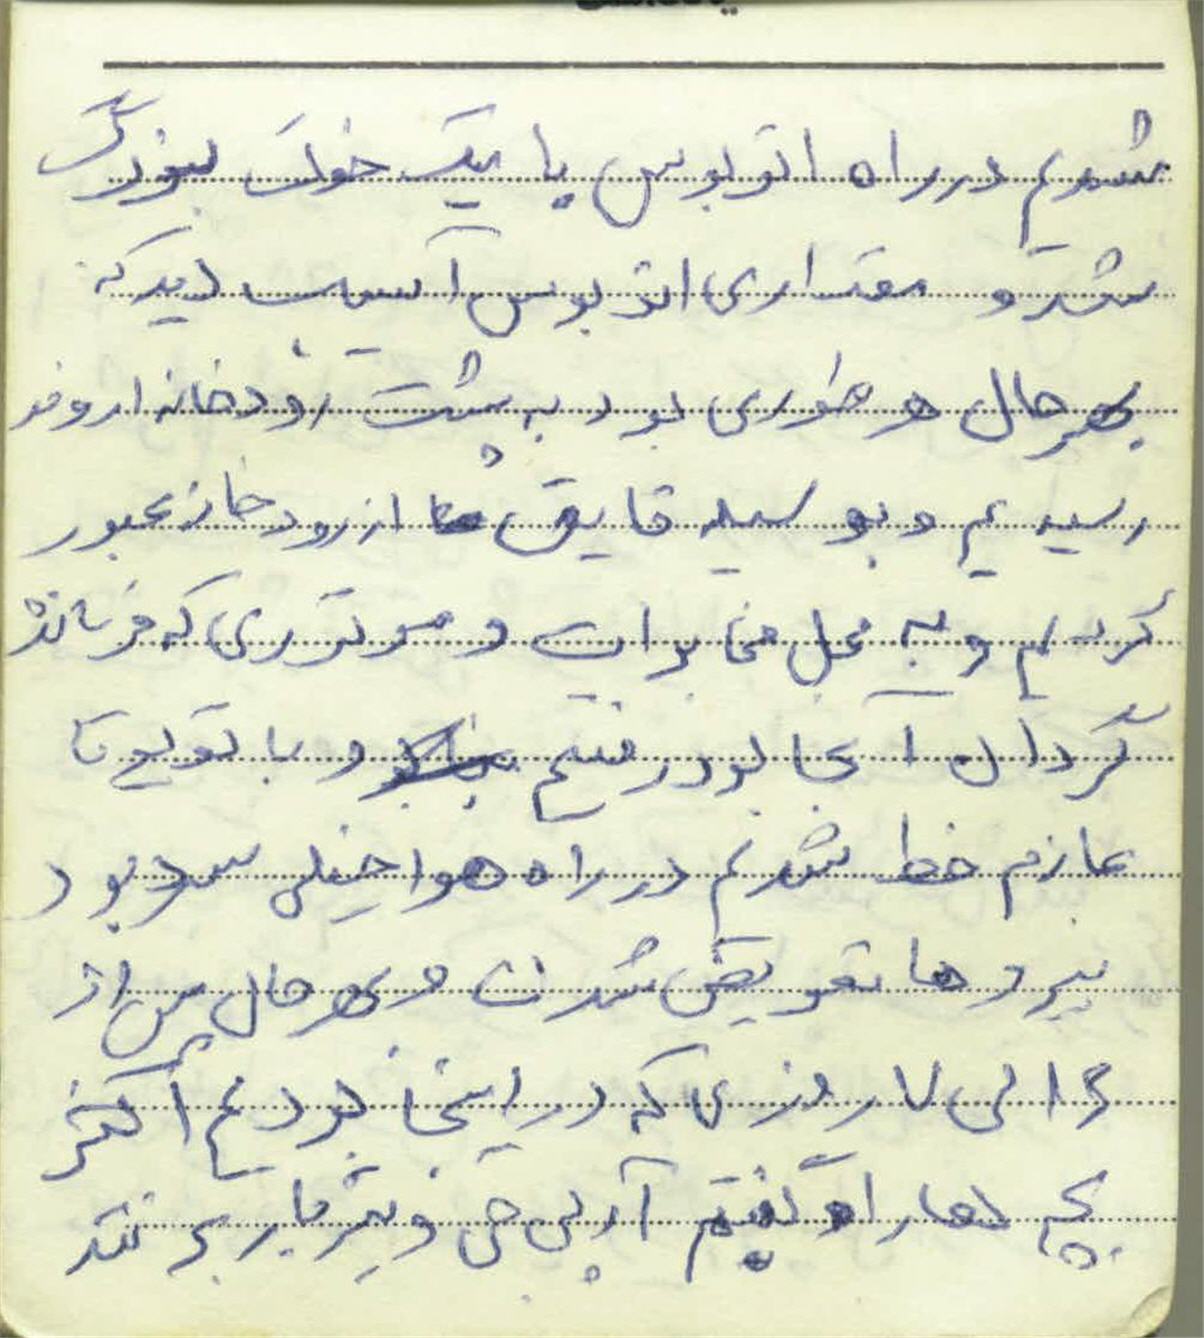 شدیم در راه اتوبوس با یک خوک بزرگ
شد و مقداری اتوبوس آسیب دید که
بهر حال هر طوری بود به پشت رودخانه اروند
رسیدیم و بوسیله قایق ما از رودخانه عبور
کردیم و به محل مخابرات و موتوری که فرمانده
گردان آنجا بود رفتیم و با تویوتا
عازم خط شدیم در راه هوا خیلی سرد بود
نیروها تعویض شدند و بهر حال پس از
۶ الی ۷ روزی که در اینجا بودیم آخر
بچه ها را گفتیم آر پی جی و تیربار بزنند